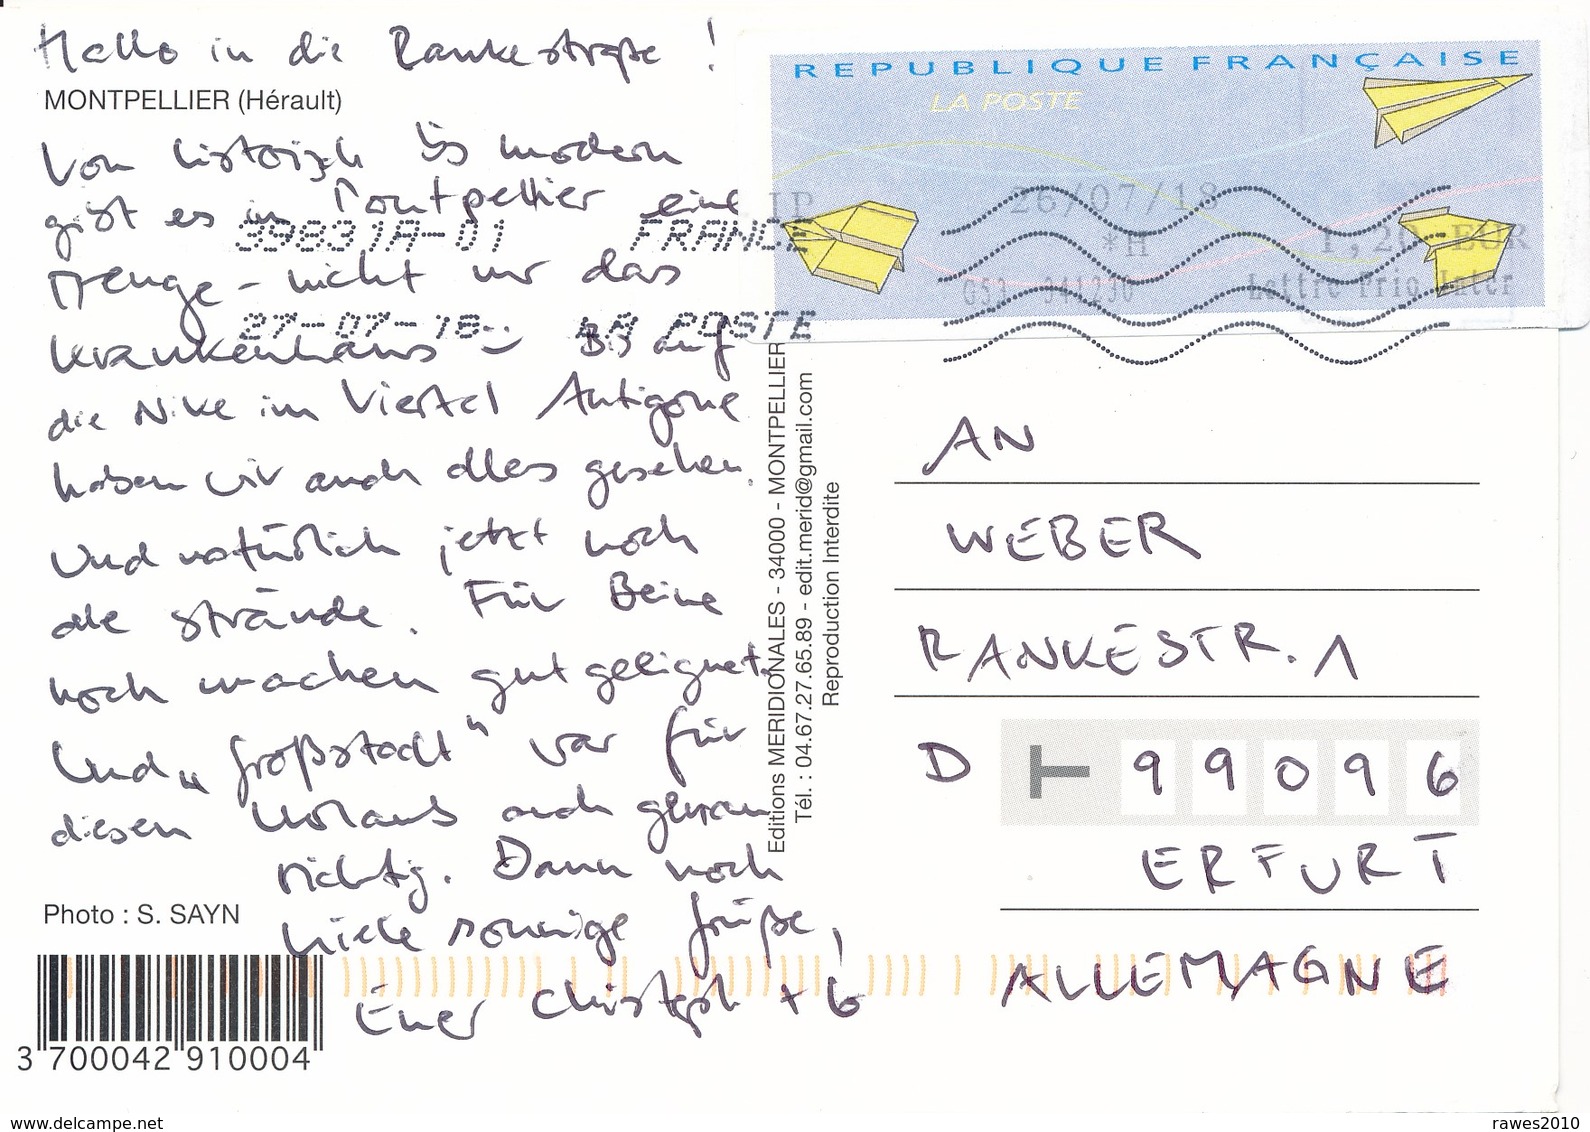 Hallo in die Rankestraße!
MONTPELLIER (Hérault)
Von historisch bis modern
gibt es in Montpellier eine
Menge - nicht nur das
Krankenhaus :-) Bis auf
die Nike im Viertel Antigone
haben wir auch alles gesehen.
Und natürlich jetzt noch
die Strände. Für Beine
hoch machen gut geeignet.
Und „Großstadt" war für
diesen Urlaub auch genau
richtig. Dann noch
viele sonnige Grüße,
Euer Christoph + 6
Photo : S. SAYN
3 700042 910004
99831A-01 FRANCE
27-07-18 LA POSTE
Editions MERIDIONALES - 34000 - MONTPELLIER
Tél. : 04.67.27.65.89 - edit.merid@gmail.com
Reproduction Interdite
REPUBLIQUE FRANÇAISE
LA POSTE
IP 26/07/18
*H 1,20 EUR
G53 341230 Lettre Prio Inter
AN
WEBER
RANKESTR. 1
D 99096
ERFURT
ALLEMAGNE
www.delcampe.net
rawes2010